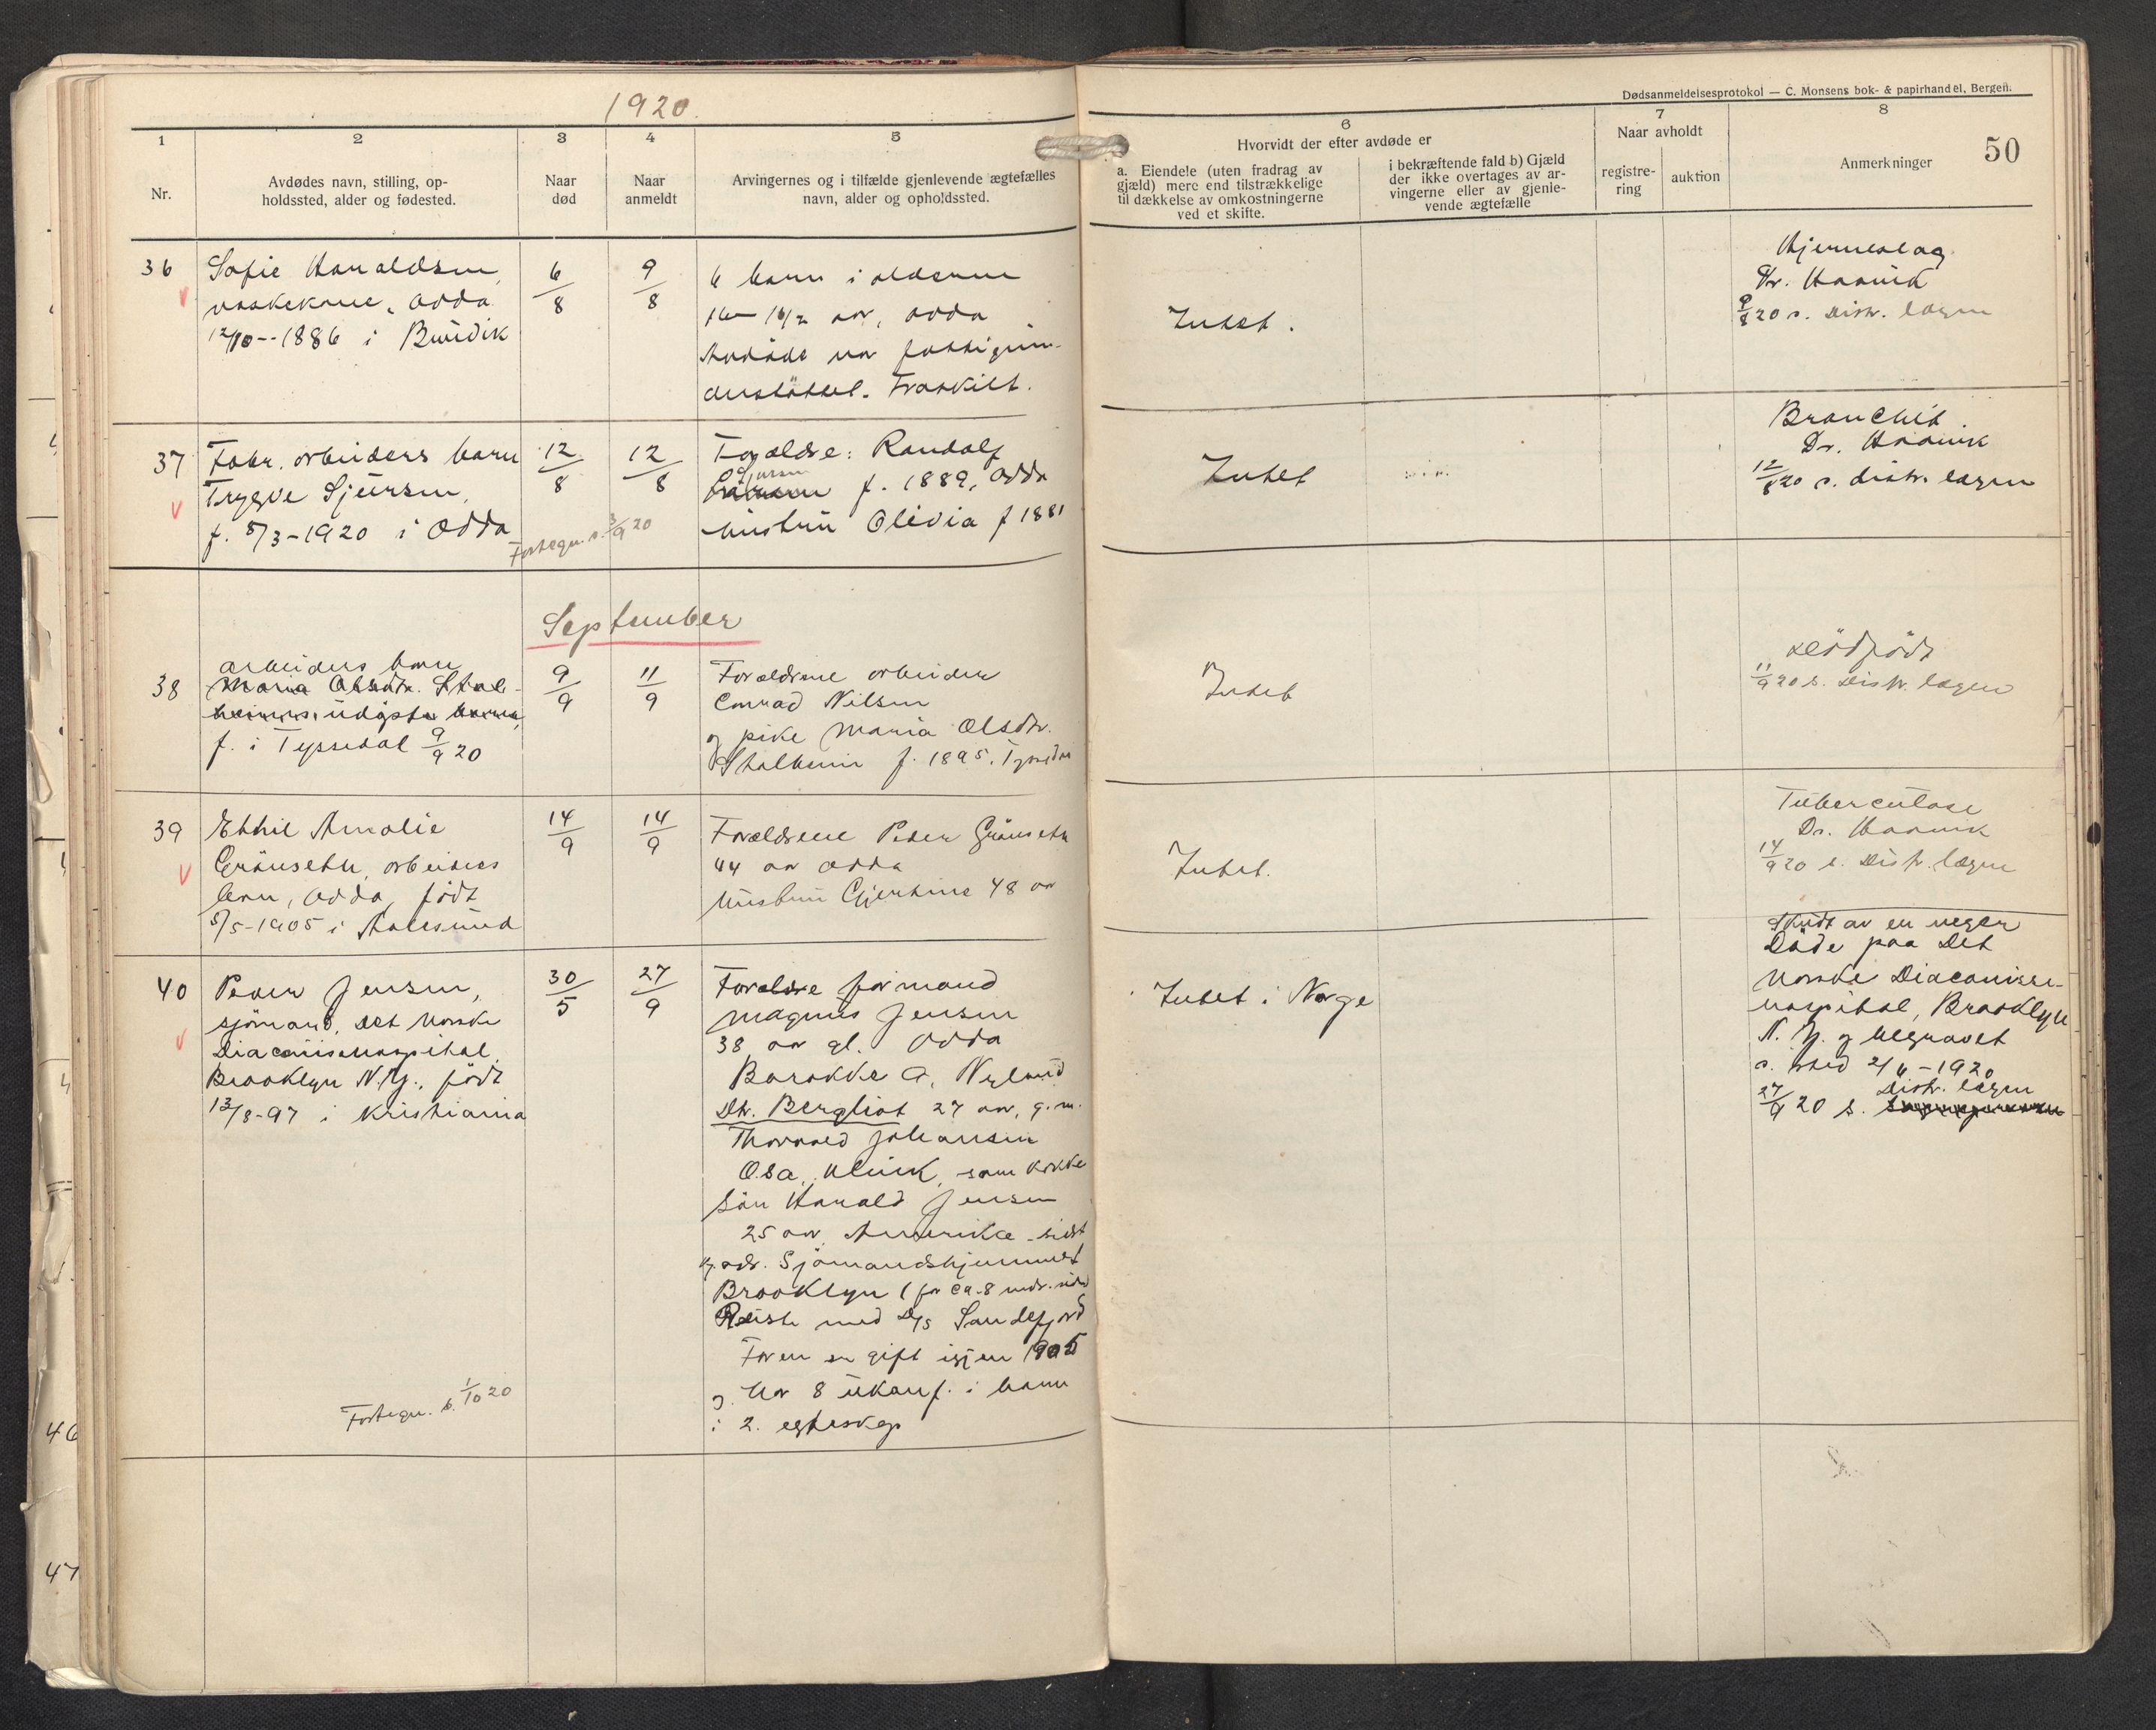 1920.
Dødsanmeldelsesprotokol — C. Monsens bok- & papirhandel, Bergen.
50
1
2
3
4
5
6
7
8
Nr.
Avdødes navn, stilling, op-
holdssted, alder og fødested.
Naar
død
Naar
anmeldt
Arvingernes og i tilfælde gjenlevende ægtefælles
navn, alder og opholdssted.
Hvorvidt der efter avdøde er
a. Eiendele (uten fradrag av
gjæld) mere end tilstrækkelige
til dækkelse av omkostningerne
ved et skifte.
i bekræftende fald b) Gjæld
der ikke overtages av ar-
vingerne eller av gjenle-
vende ægtefælle
Naar avholdt
registre-
ring
auktion
Anmerkninger
36
Sofie Haraldsen,
vaskekone, Odda
12/10--1886 i
6/8
9/8
6 barn i alderen
aar, Odda
Avdøde var fattigun-
derstøttet. Fraskilt.
Intet.
Hjerneslag
Dr. Haavik
9/8 20 s. Distr. lægen
37
Fabr. arbeiders barn
Trygve Sjursen,
f. 8/3-1920 i Odda
12/8
12/8
Fortegn. s. 3/9 20
Forældre: Randolf
Sjursen
f. 1889, Odda
hustru Olivia f 1881
Intet
Bronchit
Dr. Haavik
12/8 20 s. distr. lægen
September
38
arbeiders barn
Maria Olsdtr. Stal-
heims udøpte barn,
f. i Tyssedal 9/9 20
9/9
11/9
Forældrene arbeider
Conrad Nilsen
og pike Maria Olsdtr.
Stalheim f. 1895. Tyssedal
Intet
Dödfödt
11/9 20 s. Distr. lægen
39
Ethil Amalie
Grönsetn, arbeiders
barn, Odda, födt
8/5-1905 i Aalesund
14/9
14/9
Forældrene Peder Grönsetn
44 aar Odda
hustru Gjertine 48 aar
Intet.
Tuberculose
Dr. Haavik
14/9 20 s. Distr. lægen
40
Peder Jensen,
sjömand, Det Norske
Diaconissehospital,
Brooklyn N.Y., födt
13/8-97 i Kristiania
30/5
27/9
Forældre formand
Magnus Jensen
38 aar gl. Odda
Barakke a, Nyland
Dtr. Bergliot 27 aar, g.m.
Thorvald Johansen
Osa, Ulvik, som kokke
Sön Harald Jensen
25 aar, Amerika - sidst
kj. adr. Sjömandshjemmet
Brooklyn (for ca. 8 mdr. siden
Reiste med D/S Sandefjord
Faren er gift igjen 1905
og har 8 ukonf. i barn
i 2. egteskap
Fortegn. s. 1/10 20
Intet i Norge
Skudt av en neger
Döde paa Det
Norske Diaconisse-
hospital, Brooklyn
N. Y. og begravet
s. sted 2/6-1920
Distr. lægen
27/9 20 s.
46
47